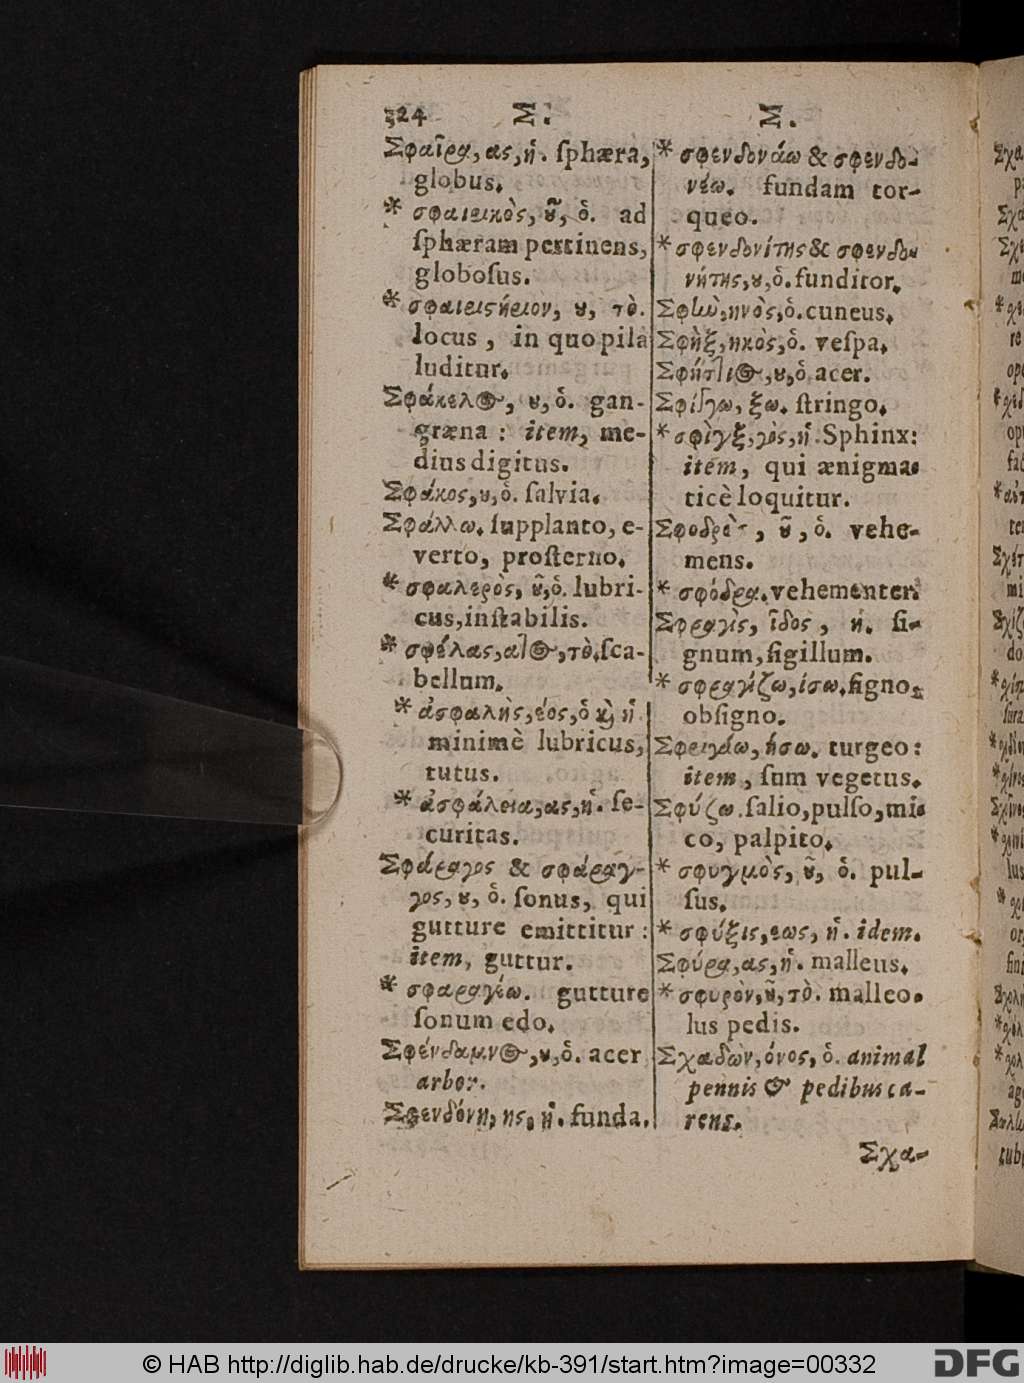 324 M. M.
Σφαῖρα, ας, ἡ. ſphæra,
globus.
* σφαιρικὸς, οῦ, ὁ. ad
ſphæram pertinens,
globoſus.
* σφαιριστήριον, ου, τὸ.
locus, in quo pila
luditur.
Σφάκελος, ου, ὁ. gan-
græna : item, me-
dius digitus.
Σφάκος, ου, ὁ. ſalvia.
Σφάλλω. ſupplanto, e-
verto, proſterno.
* σφαλερὸς, οῦ, ὁ. lubri-
cus, inſtabilis.
* σφέλας, ατος, τὸ. ſca-
bellum.
* ἀσφαλὴς, έος, ὁ καὶ ἡ
minimè lubricus,
tutus.
* ἀσφάλεια, ας, ἡ. ſe-
curitas.
Σφάραγος & σφάραγ-
γος, ου, ὁ. ſonus, qui
gutture emittitur :
item, guttur.
* σφαραγέω. gutture
ſonum edo.
Σφένδαμνος, ου, ὁ. acer
arbor.
Σφενδόνη, ης, ἡ. funda.
* σφενδονάω & σφενδο-
νέω. fundam tor-
queo.
* σφενδονίτης & σφενδο-
νήτης, ου, ὁ. funditor.
Σφὴν, ηνὸς, ὁ. cuneus.
Σφὴξ, ηκὸς, ὁ. veſpa.
Σφήτλιος, ου, ὁ. acer.
Σφίγγω, ξω. ſtringo.
* σφὶγξ, γὸς, ἡ. Sphinx:
item, qui ænigma-
ticè loquitur.
Σφοδρὸς, οῦ, ὁ. vehe-
mens.
* σφόδρα. vehementer.
Σφραγὶς, ῖδος, ἡ. ſi-
gnum, ſigillum.
* σφραγίζω, ίσω. ſigno,
obſigno.
Σφριγάω, ήσω. turgeo:
item, ſum vegetus.
Σφύζω. ſalio, pulſo, mi-
co, palpito.
* σφυγμὸς, οῦ, ὁ. pul-
ſus.
* σφύξις, εως, ἡ. idem.
Σφύρα, ας, ἡ. malleus.
* σφυρὸν, οῦ, τὸ. malleo-
lus pedis.
Σχαδὼν, όνος, ὁ. animal
pennis & pedibus ca-
rens.
Σχα-
© HAB http://diglib.hab.de/drucke/kb-391/start.htm?image=00332
DFG